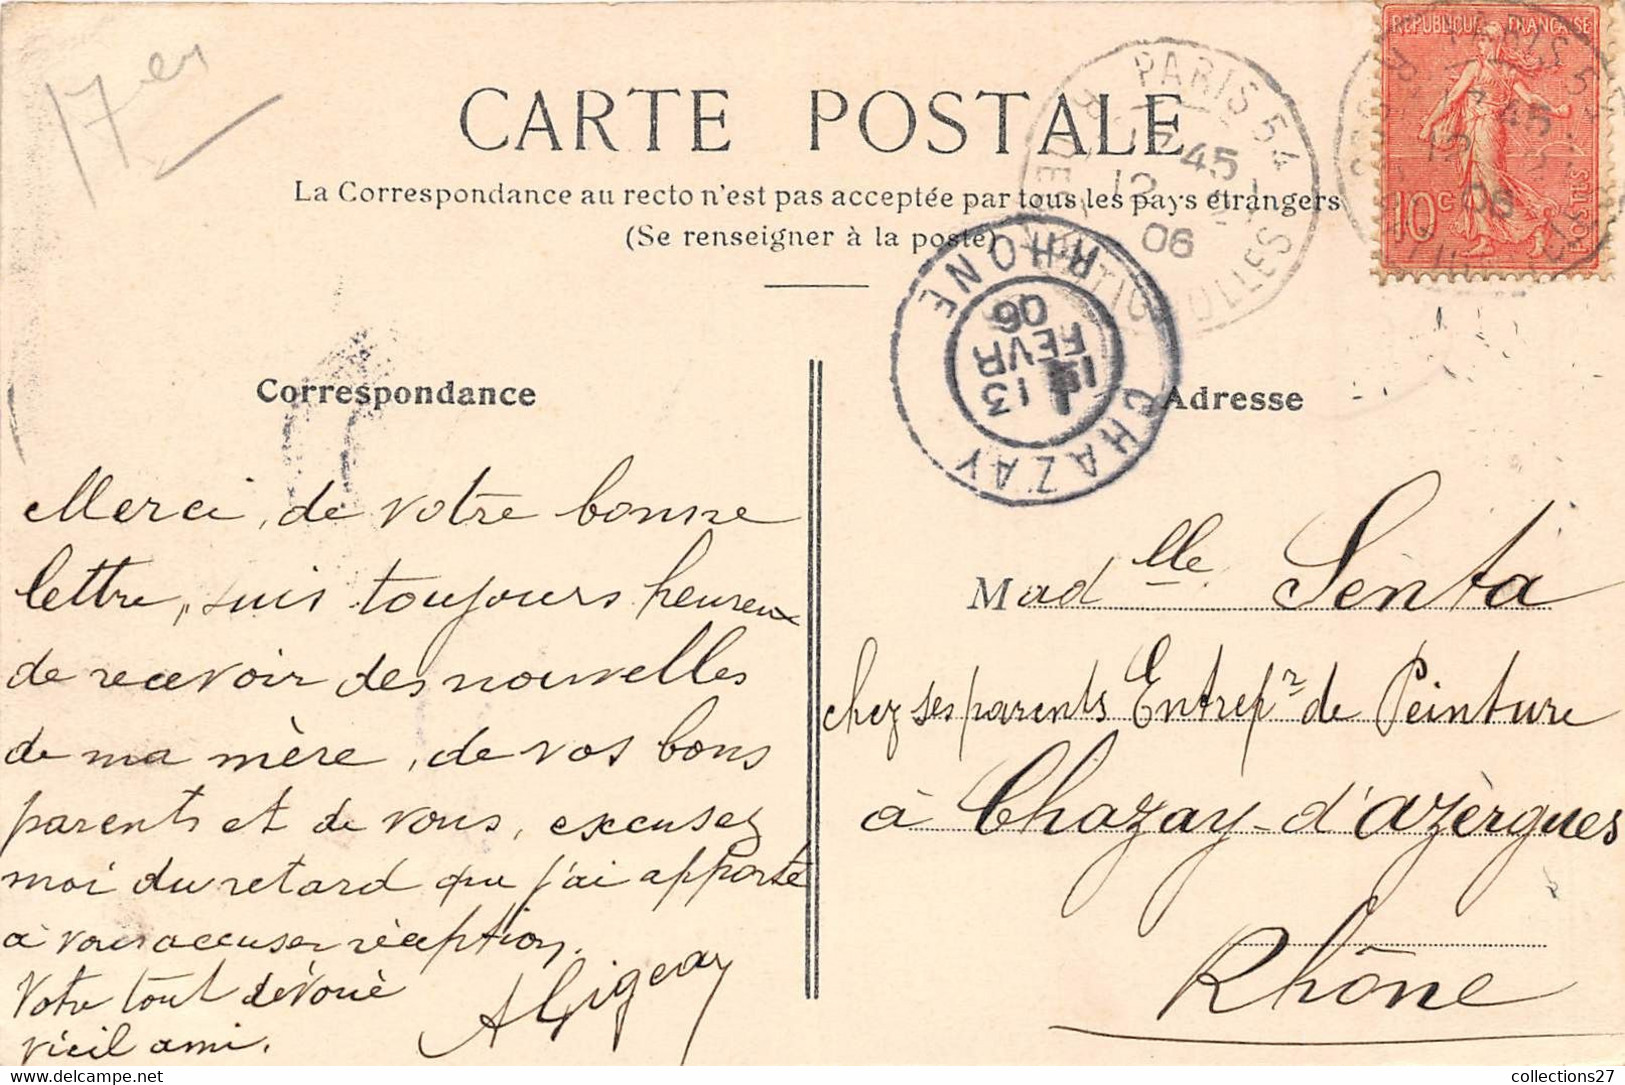 17er
CARTE POSTALE
La Correspondance au recto n'est pas acceptée par tous les pays étrangers
(Se renseigner à la poste)
RÉPUBLIQUE FRANÇAISE
10c
POSTES
PARIS 54
45
12 2
06
CHAZAY
RHONE
13
FEVR
06
Correspondance
Merci, de votre bonne
lettre, suis toujours heureux
de recevoir des nouvelles
de ma mère, de vos bons
parents et de vous, excusez
moi du retard que j'ai apporté
à vous accuser réception.
Votre tout dévoué
vieil ami.
Adresse
Madlle Senta
chez ses parents Entrepr de Peinture
à Chazay-d'azèrgues
Rhône
collections27